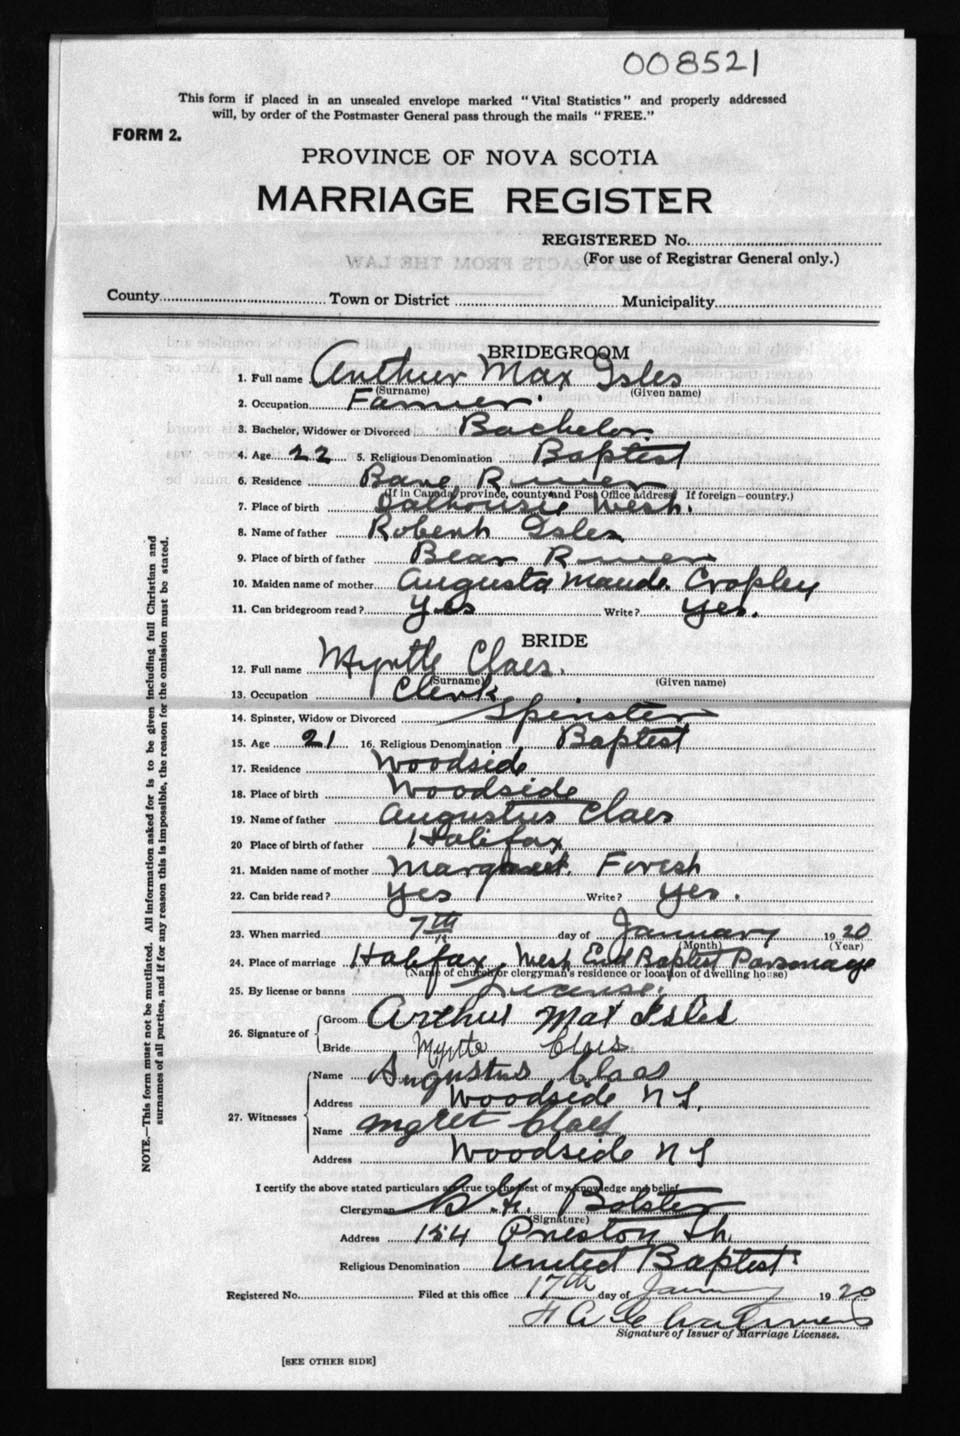 008521
This form if placed in an unsealed envelope marked "Vital Statistics" and properly addressed
will, by order of the Postmaster General pass through the mails "FREE."
FORM 2.
PROVINCE OF NOVA SCOTIA
MARRIAGE REGISTER
REGISTERED No.
(For use of Registrar General only.)
County Town or District Municipality
BRIDEGROOM
1. Full name Arthur Max Isles
(Surname) (Given name)
2. Occupation Farmer.
3. Bachelor, Widower or Divorced Bachelor.
4. Age 22 5. Religious Denomination Baptist
6. Residence Bear River
(If in Canada, province, county and Post Office address, If foreign—country.)
7. Place of birth Dalhousie West.
8. Name of father Robert Isles
9. Place of birth of father Bear River
10. Maiden name of mother Augusta Maude. Cropley
11. Can bridegroom read? Yes Write? Yes.
BRIDE
12. Full name Myrtle Claes.
(Surname) (Given name)
13. Occupation Clerk
14. Spinster, Widow or Divorced Spinster
15. Age 21 16. Religious Denomination Baptist
17. Residence Woodside
18. Place of birth Woodside
19. Name of father Augustus Claes
20 Place of birth of father Halifax
21. Maiden name of mother Margaret. Forsh
22. Can bride read? Yes Write? Yes.
23. When married 7th day of January 1920
(Month) (Year)
24. Place of marriage Halifax West End Baptist Parsonage
(Name of church or clergyman's residence or location of dwelling house)
25. By license or banns License.
26. Signature of Groom Arthur Max Isles
Bride Myrtle Claes
27. Witnesses Name Augustus Claes
Address Woodside N S.
Name Mgret Claes
Address Woodside N S
I certify the above stated particulars are true to the best of my knowledge and belief
Clergyman Bolster
(Signature)
Address 154 Preston St.
Religious Denomination United Baptist
Registered No. Filed at this office 17th day of January 1920
Signature of Issuer of Marriage Licenses.
[SEE OTHER SIDE]
NOTE.—This form must not be mutilated. All information asked for is to be given including full Christian and
surnames of all parties, and if for any reason this is impossible, the reason for the omission must be stated.